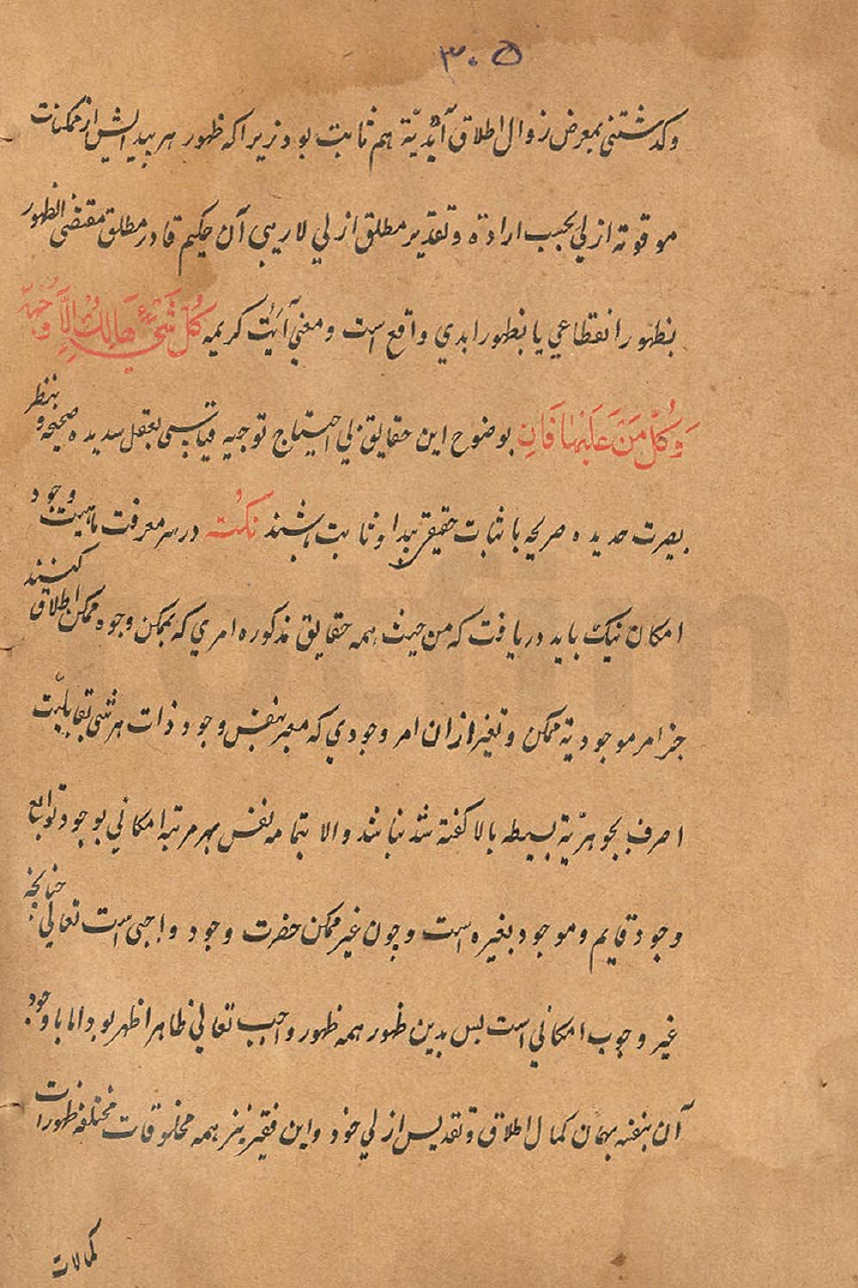 ۳۰۵
و کذشتنی بمعرض زوال اطلاق ابدیّة هم ثابت بود زیرا که ظهور هر پیدایش از ممکنات
موقوته ازلي بحسب ارادة و تقدیر مطلق ازلي لاریبي آن حکیم قادر مطلق مقتضی الظهور
بظهور انقطاعي یا بظهور ابدي واقع است و معنی آیت کریمه كُلُّ شَيْءٍ هَالِكٌ إِلَّا وَجْهَهُ
وَكُلُّ مَنْ عَلَيْهَا فَانٍ بوضوح این حقایق بي احتیاج توجیه قیاسی بعقل سدیده صحیحه و بنظر
بصیرت حدیده صریحه باثبات حقیقي پیدا و ثابت باشند نکته در سر معرفت ماهیت وجود
امکان نیک باید دریافت که من حیث همه حقایق مذکوره امري که بممکن وجوه ممکن اطلاق کنند
جز امر موجودیة ممکن و تغیر ازان امر وجودي که معبر بنفس وجود ذات هر شی بقابلیّت
احرف بجوهریّة بسیطه بالا کفته شد نباشد والا بتمامه نفس بهر مرتبه امکاني بوجود توابع
وجود قایم و موجود بغیره است و چون غیر ممکن حضرت وجود واجبی است تعالی چنانچه
غیر وجوب امکاني است پس بدین ظهور همه ظهور واجب تعالي ظاهرا ظهر بود اما با وجود
آن بنفسه بهمان کمال اطلاق و تقدیس ازلي خود و این فقیر نیز همه مخلوقات مختلفه ظهورات
کمالات